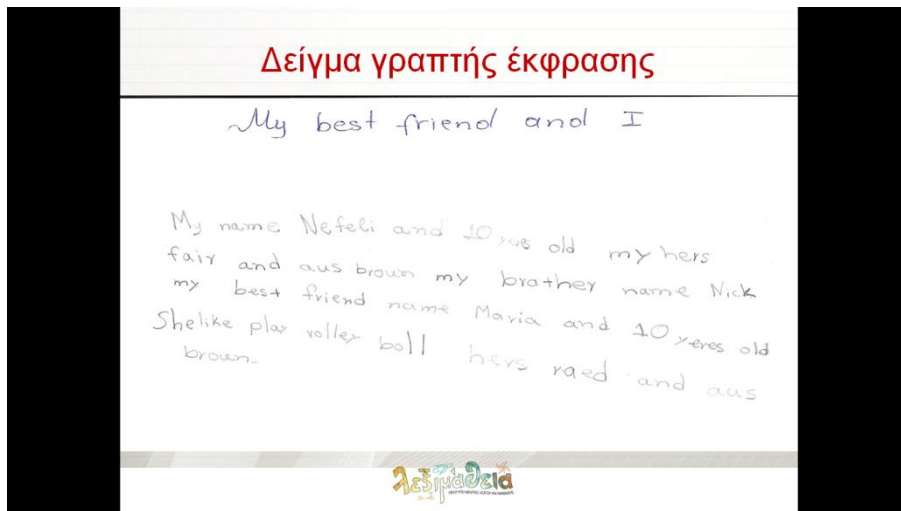 Δείγμα γραπτής έκφρασης
My best friend and I
My name Nefeli and 10 yes old my hers
fair and aus brown my brather name Nick
my best friend name Maria and 10 yeres old
Shelike play volley boll hers raed and aus
brown.
λεξιμάθεια